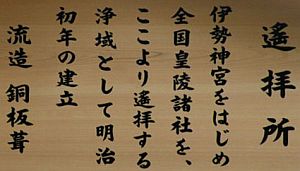 遙拝所
伊勢神宮をはじめ
全国皇陵諸社を、
ここより遙拝する
浄域として明治
初年の建立
流造 銅板葺